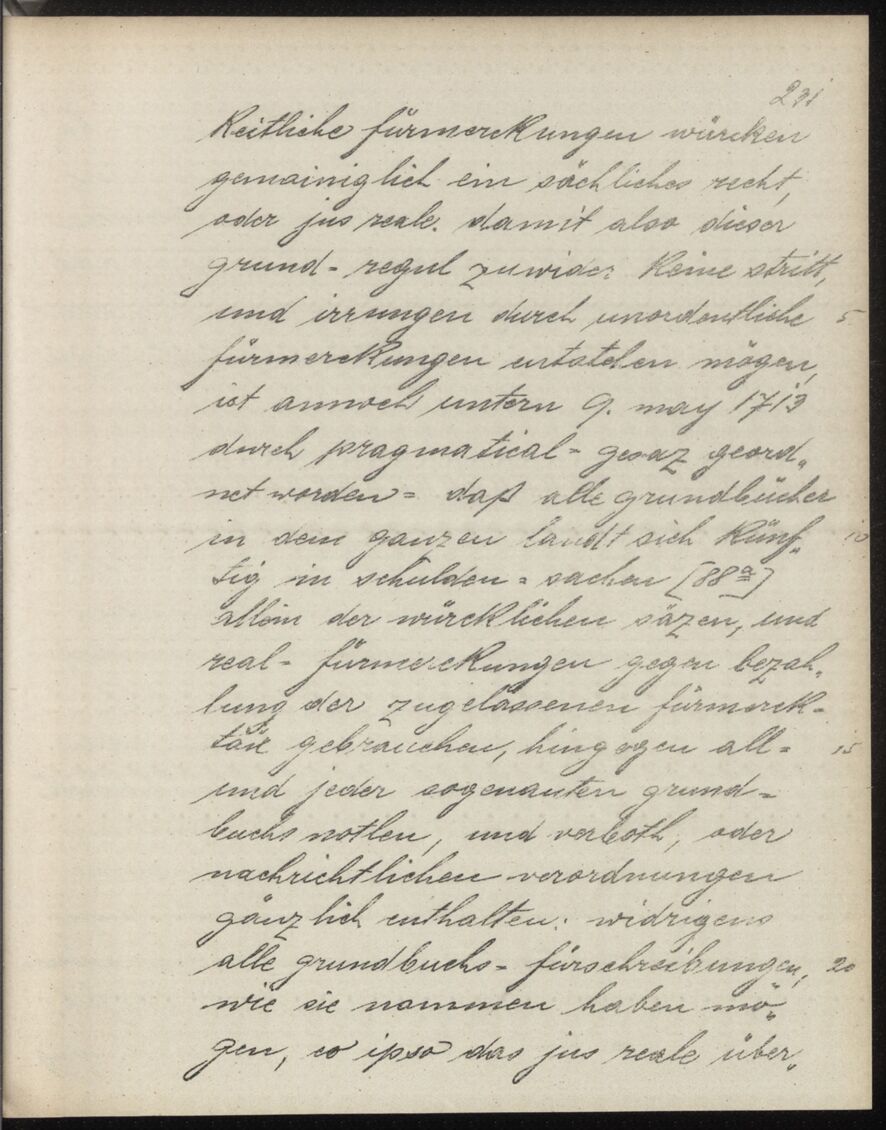 231
keitliche fürmerckungen würcken
gemainiglich ein sächliches recht,
oder jus reale. damit also dieser
grund- regul zuwider keine stritt,
und irrungen durch unordentliche 5
fürmerckungen entstehen mögen,
ist annoch untern 9. may 1713
durch pragmatical- gesaz geord„
net worden= daß alle grundbücher
in dem ganzen landt sich künf„ 10
tig in schulden= sachen [88a]
allein der würcklichen säzen, und
real- fürmerckungen gegen bezah„
lung der zugelassenen fürmerck-
täx gebrauchen, hingegen all= 15
und jeder sogenanten grund=
buchs notlen, und verboth, oder
nachrichtlichen verordnungen
gänzlich enthalten: widrigens
alle grundbuchs- fürschreibungen, 20
wie sie nammen haben mö„
gen, eo ipso das jus reale über„